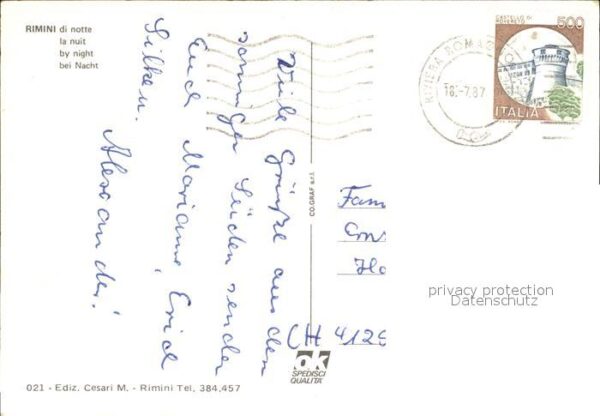 RIMINI di notte
la nuit
by night
bei Nacht
500
ITALIA
RIVIERA ROMAG
18.-7.87
Viele Grüße aus dem
sonnigen Süden sender
Euch Marianne, Erich
Silken.
Alexander!
CO.GRAF s.r.l.
Fam
Con
Ho
CH 4126
privacy protection
Datenschutz
ok
SPEDISCI
QUALITA'
021 - Ediz. Cesari M. - Rimini Tel, 384,457